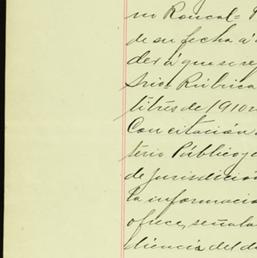 un Roncal=
de su fecha á
der á que se re
Srio Rúbrica
titrés de 1910
Con citación
terio Público y
de Jurisdicción
la informació
ofrece, señala
diencia del d